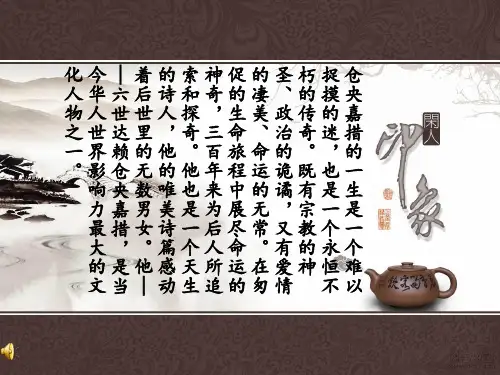 閑人
印象
仓央嘉措的一生是一个难以
捉摸的迷，也是一个永恒不
朽的传奇。既有宗教的神
圣、政治的诡谲，又有爱情
的凄美、命运的无常。在匆
促的生命旅程中展尽命运的
神奇，三百年来为后人所追
索和探奇。他也是一个天生
的诗人，他的唯美诗篇感动
着后世里的无数男女。他—
—六世达赖仓央嘉措，是当
今华人世界影响力最大的文
化人物之一。